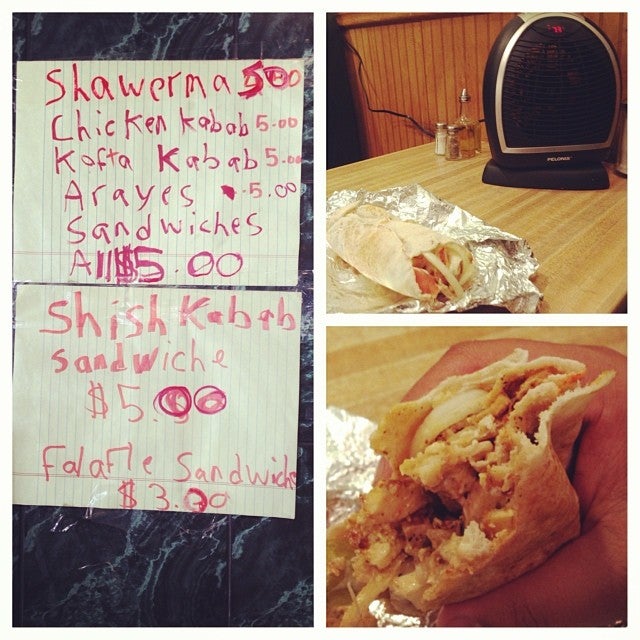 Shawerma 5.00
Chicken Kabab 5.00
Kofta Kabab 5.00
Arayes - 5.00
Sandwiches
All $5.00
Shish Kabab
Sandwiche
$5.00
Falafle Sandwich
$3.00
PELONIS